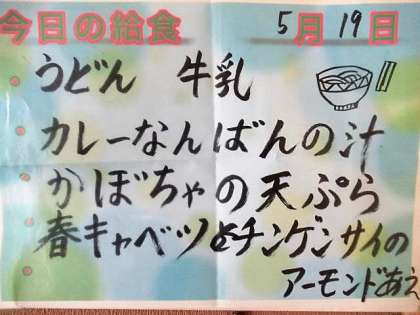 今日の給食 5月19日
うどん 牛乳
カレーなんばんの汁
かぼちゃの天ぷら
春キャベツとチンゲンサイの
アーモンドあえ